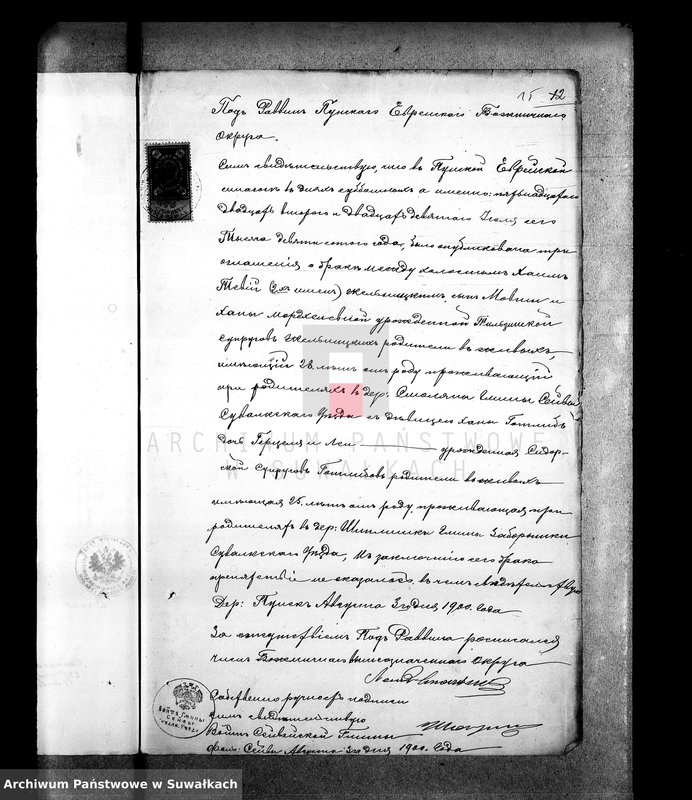 15 12
Подъ Раввинъ Пунскаго Еврейскаго Божничнаго
Округа.
Симъ свидѣтельствую, что въ Пунской Еврейской
въ дняхъ субботнихъ а именно: пятнадцатаго
двадцать втораго и двадцать девятаго Іюля сего
Тысяча девятисотаго года, было опубликовано три
оглашенія о бракѣ между холостымъ Хаимъ
Тевій (2хъ именъ) сынъ и
Ханы Мордхелевной урожденной
супруговъ родители въ живыхъ,
имѣющій 28 лѣтъ отъ роду проживающій
при родителяхъ въ дер: Смоляна Гмины Сейвы
Сувалкскаго уѣзда съ дѣвицею Ханы Готлибъ
дочь Герцеля и Леи урожденная Сидор-
ской супруговъ Готлибовъ родители въ живыхъ
имѣющая 25 лѣтъ отъ роду, проживающая при
родителяхъ въ дер: Гмины Заборишки
Сувалкскаго уѣзда, къ заключенію сего брака
препятствія не оказалось, въ чемъ свидѣтельствую
Дер: Пунскъ Августа 3го дня 1900 года
За отсутствіемъ Подъ Раввина росписался
членъ Божничнаго вышеозначеннаго Округа
Собственноручность подписи
симъ свидѣтельствую
Войтъ Сейвейской Гмины
фол: Сейвы Августа 3го дня 1900 года
ВОЙТЪ ГМИНЫ
СЕЙВЫ
ARCHIWUM PAŃSTWOWE
W SUWAŁKACH
Archiwum Państwowe w Suwałkach